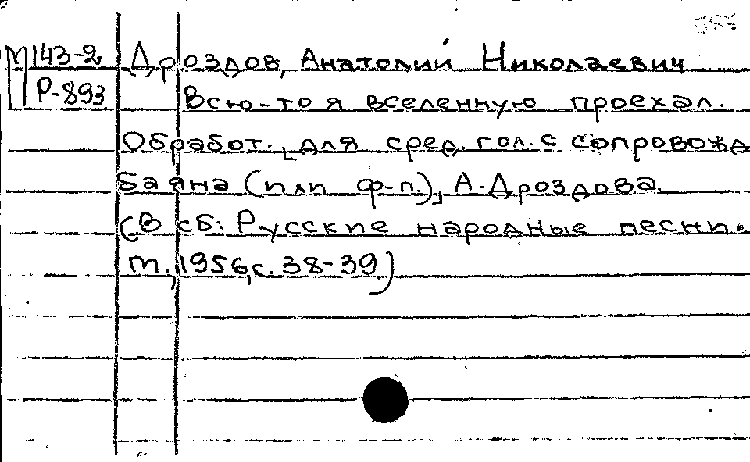 М 143-2
Р-893
Дроздов, Анатолий Николаевич
Всю-то я вселенную проехал.
Обработ. для сред. гол. с сопровожд
баяна (или ф-п.), А. Дроздова.
(В сб: Русские народные песни.
М., 1956, с. 38-39)